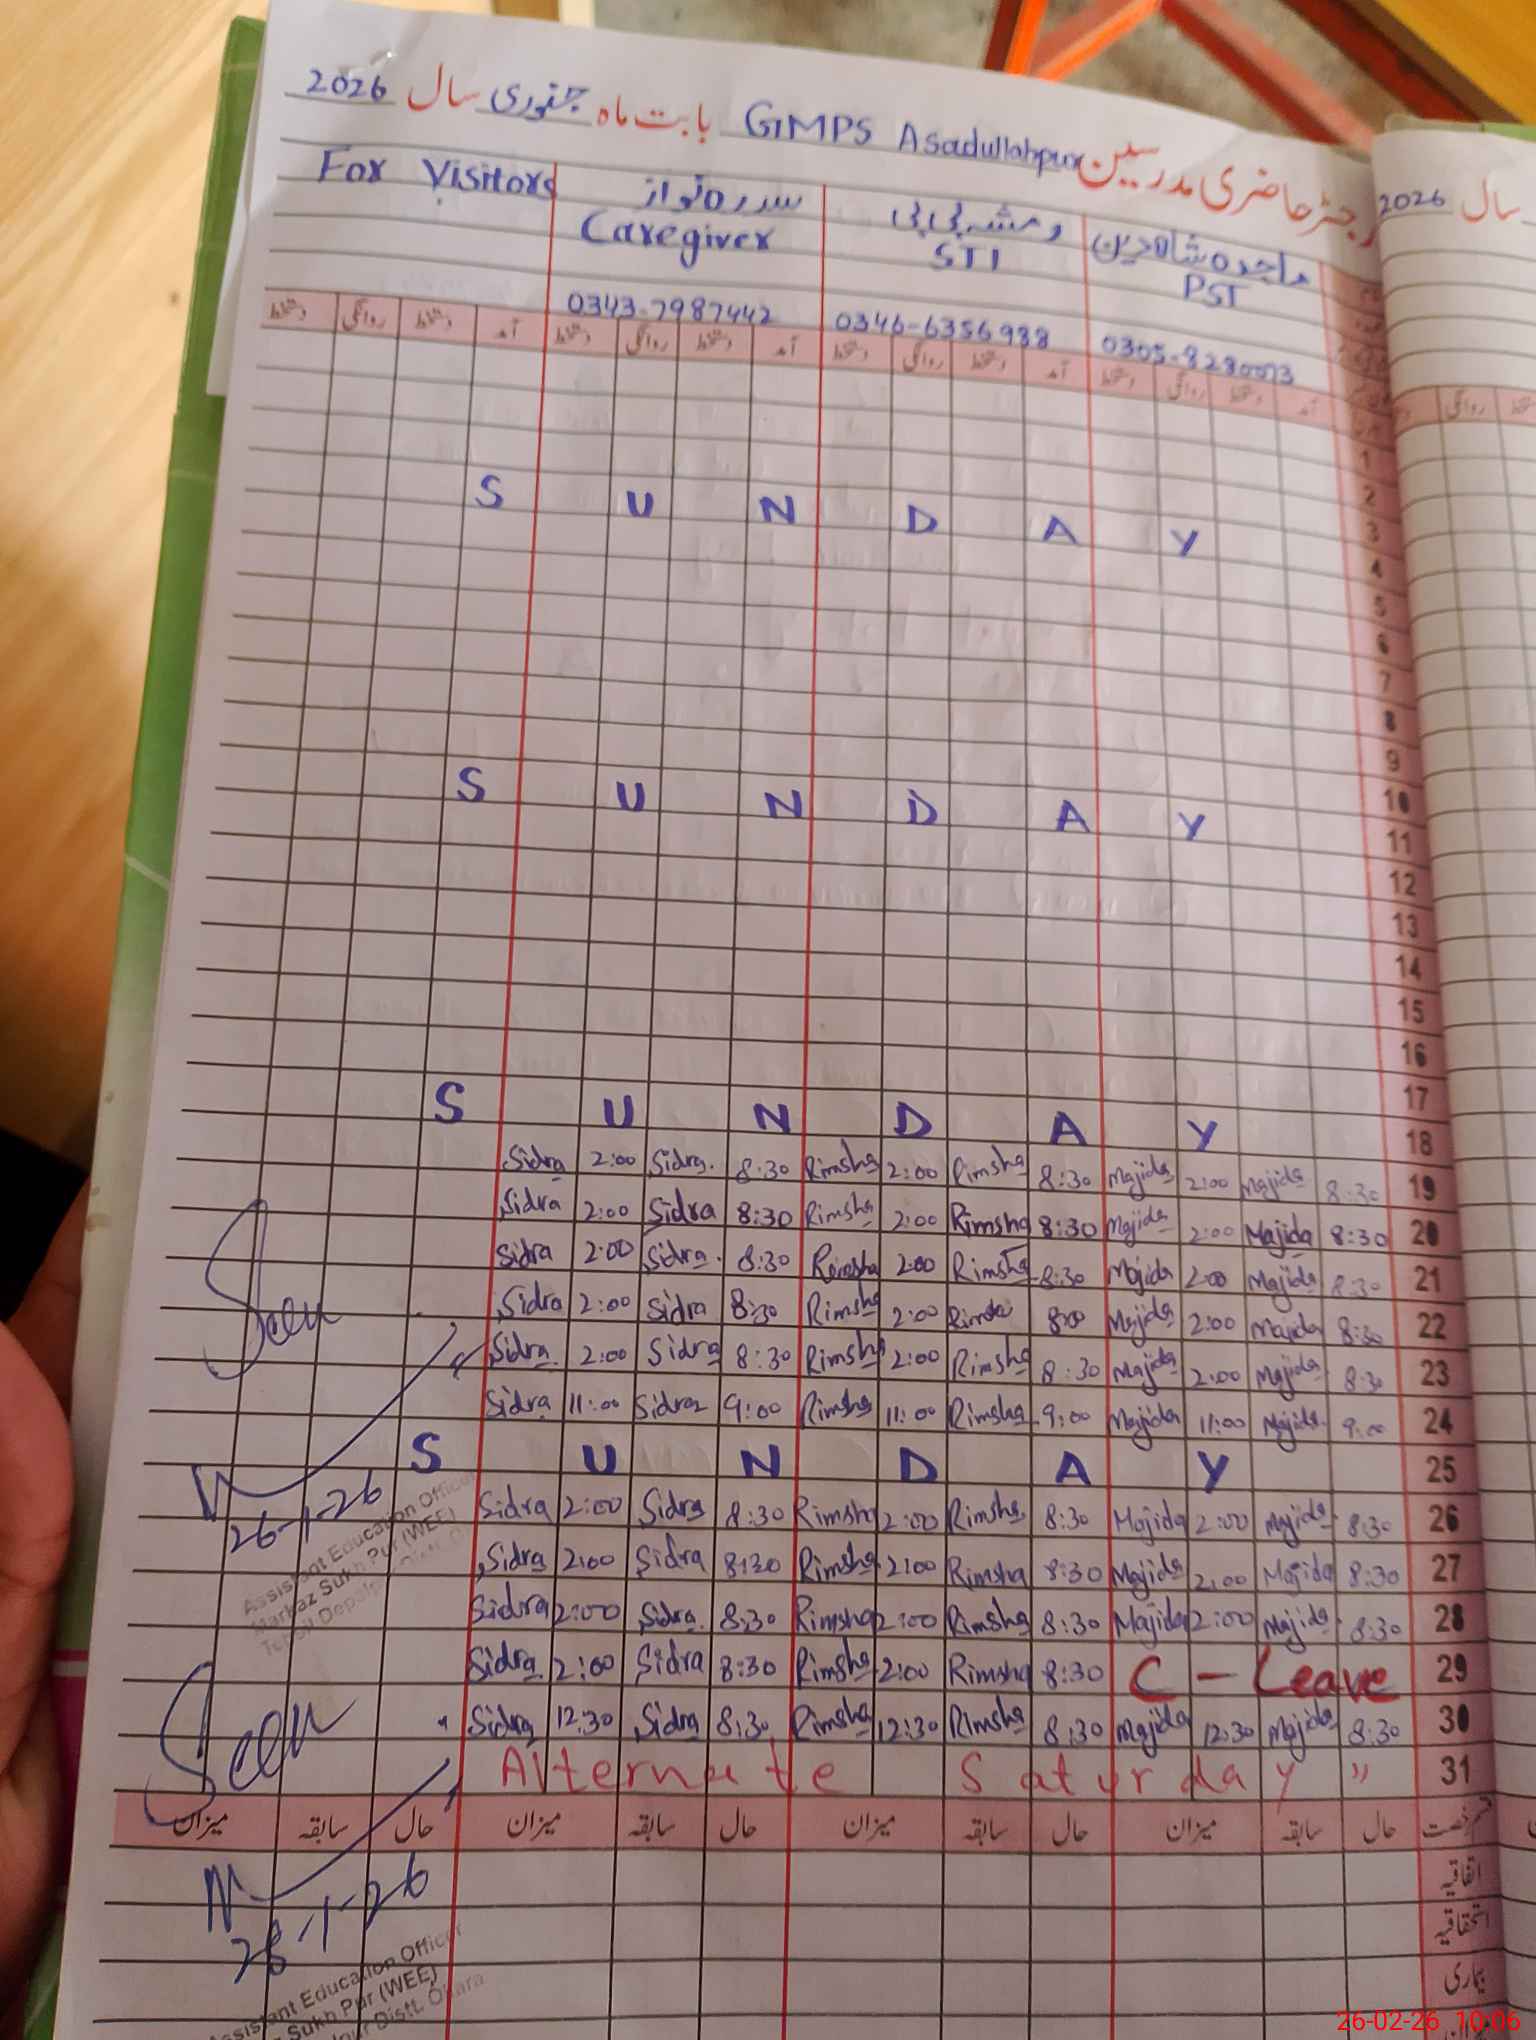 رجسٹر حاضری مدرسین GMPS Asadullahpur بابت ماہ جنوری سال 2026
سال 2026
ماجدہ شاہین رمشہ بی بی سدرہ نواز For Visitors
PST STI Caregiver
0305-8280073 0346-6356988 0343-7987442
آمد دستخط روانگی دستخط آمد دستخط روانگی دستخط آمد دستخط روانگی دستخط آمد دستخط روانگی دستخط
روانگی
1
2
3
S U N D A Y 4
5
6
7
8
9
10
S U N D A Y 11
12
13
14
15
16
17
S U N D A Y 18
Sidra 2:00 Sidra 8:30 Rimsha 2:00 Rimsha 8:30 Majida 2:00 Majida 8:30 19
Sidra 2:00 Sidra 8:30 Rimsha 2:00 Rimsha 8:30 Majida 2:00 Majida 8:30 20
Sidra 2:00 Sidra 8:30 Rimsha 2:00 Rimsha 8:30 Majida 2:00 Majida 8:30 21
Sidra 2:00 Sidra 8:30 Rimsha 2:00 Rimsha Majida 2:00 Majida 8:30 22
Sidra 2:00 Sidra 8:30 Rimsha 2:00 Rimsha 8:30 Majida 2:00 Majida 8:30 23
Sidra 11:00 Sidra 9:00 Rimsha 11:00 Rimsha 9:00 Majida 11:00 Majida 9:00 24
Seen
S U N D A Y 25
26-1-26
Assistant Education Officer
Markaz Sukh Pur (WEE)
Sidra 2:00 Sidra 8:30 Rimsha 2:00 Rimsha 8:30 Majida 2:00 Majida 8:30 26
Sidra 2:00 Sidra 8:30 Rimsha 2:00 Rimsha 8:30 Majida 2:00 Majida 8:30 27
Sidra 2:00 Sidra 8:30 Rimsha 2:00 Rimsha 8:30 Majida 2:00 Majida 8:30 28
Sidra 2:00 Sidra 8:30 Rimsha 2:00 Rimsha 8:30 C - Leave 29
Sidra 12:30 Sidra 8:30 Rimsha 12:30 Rimsha 8:30 Majida 12:30 Majida 8:30 30
Seen
Alternate Saturday " 31
رخصت حال سابقہ میزان حال سابقہ میزان حال سابقہ میزان حال سابقہ میزان
اتفاقیہ
استحقاقیہ
بیماری
28-1-26
Assistant Education Officer
Sukh Pur (WEE)
Distt. Okara
26-02-26 10:06